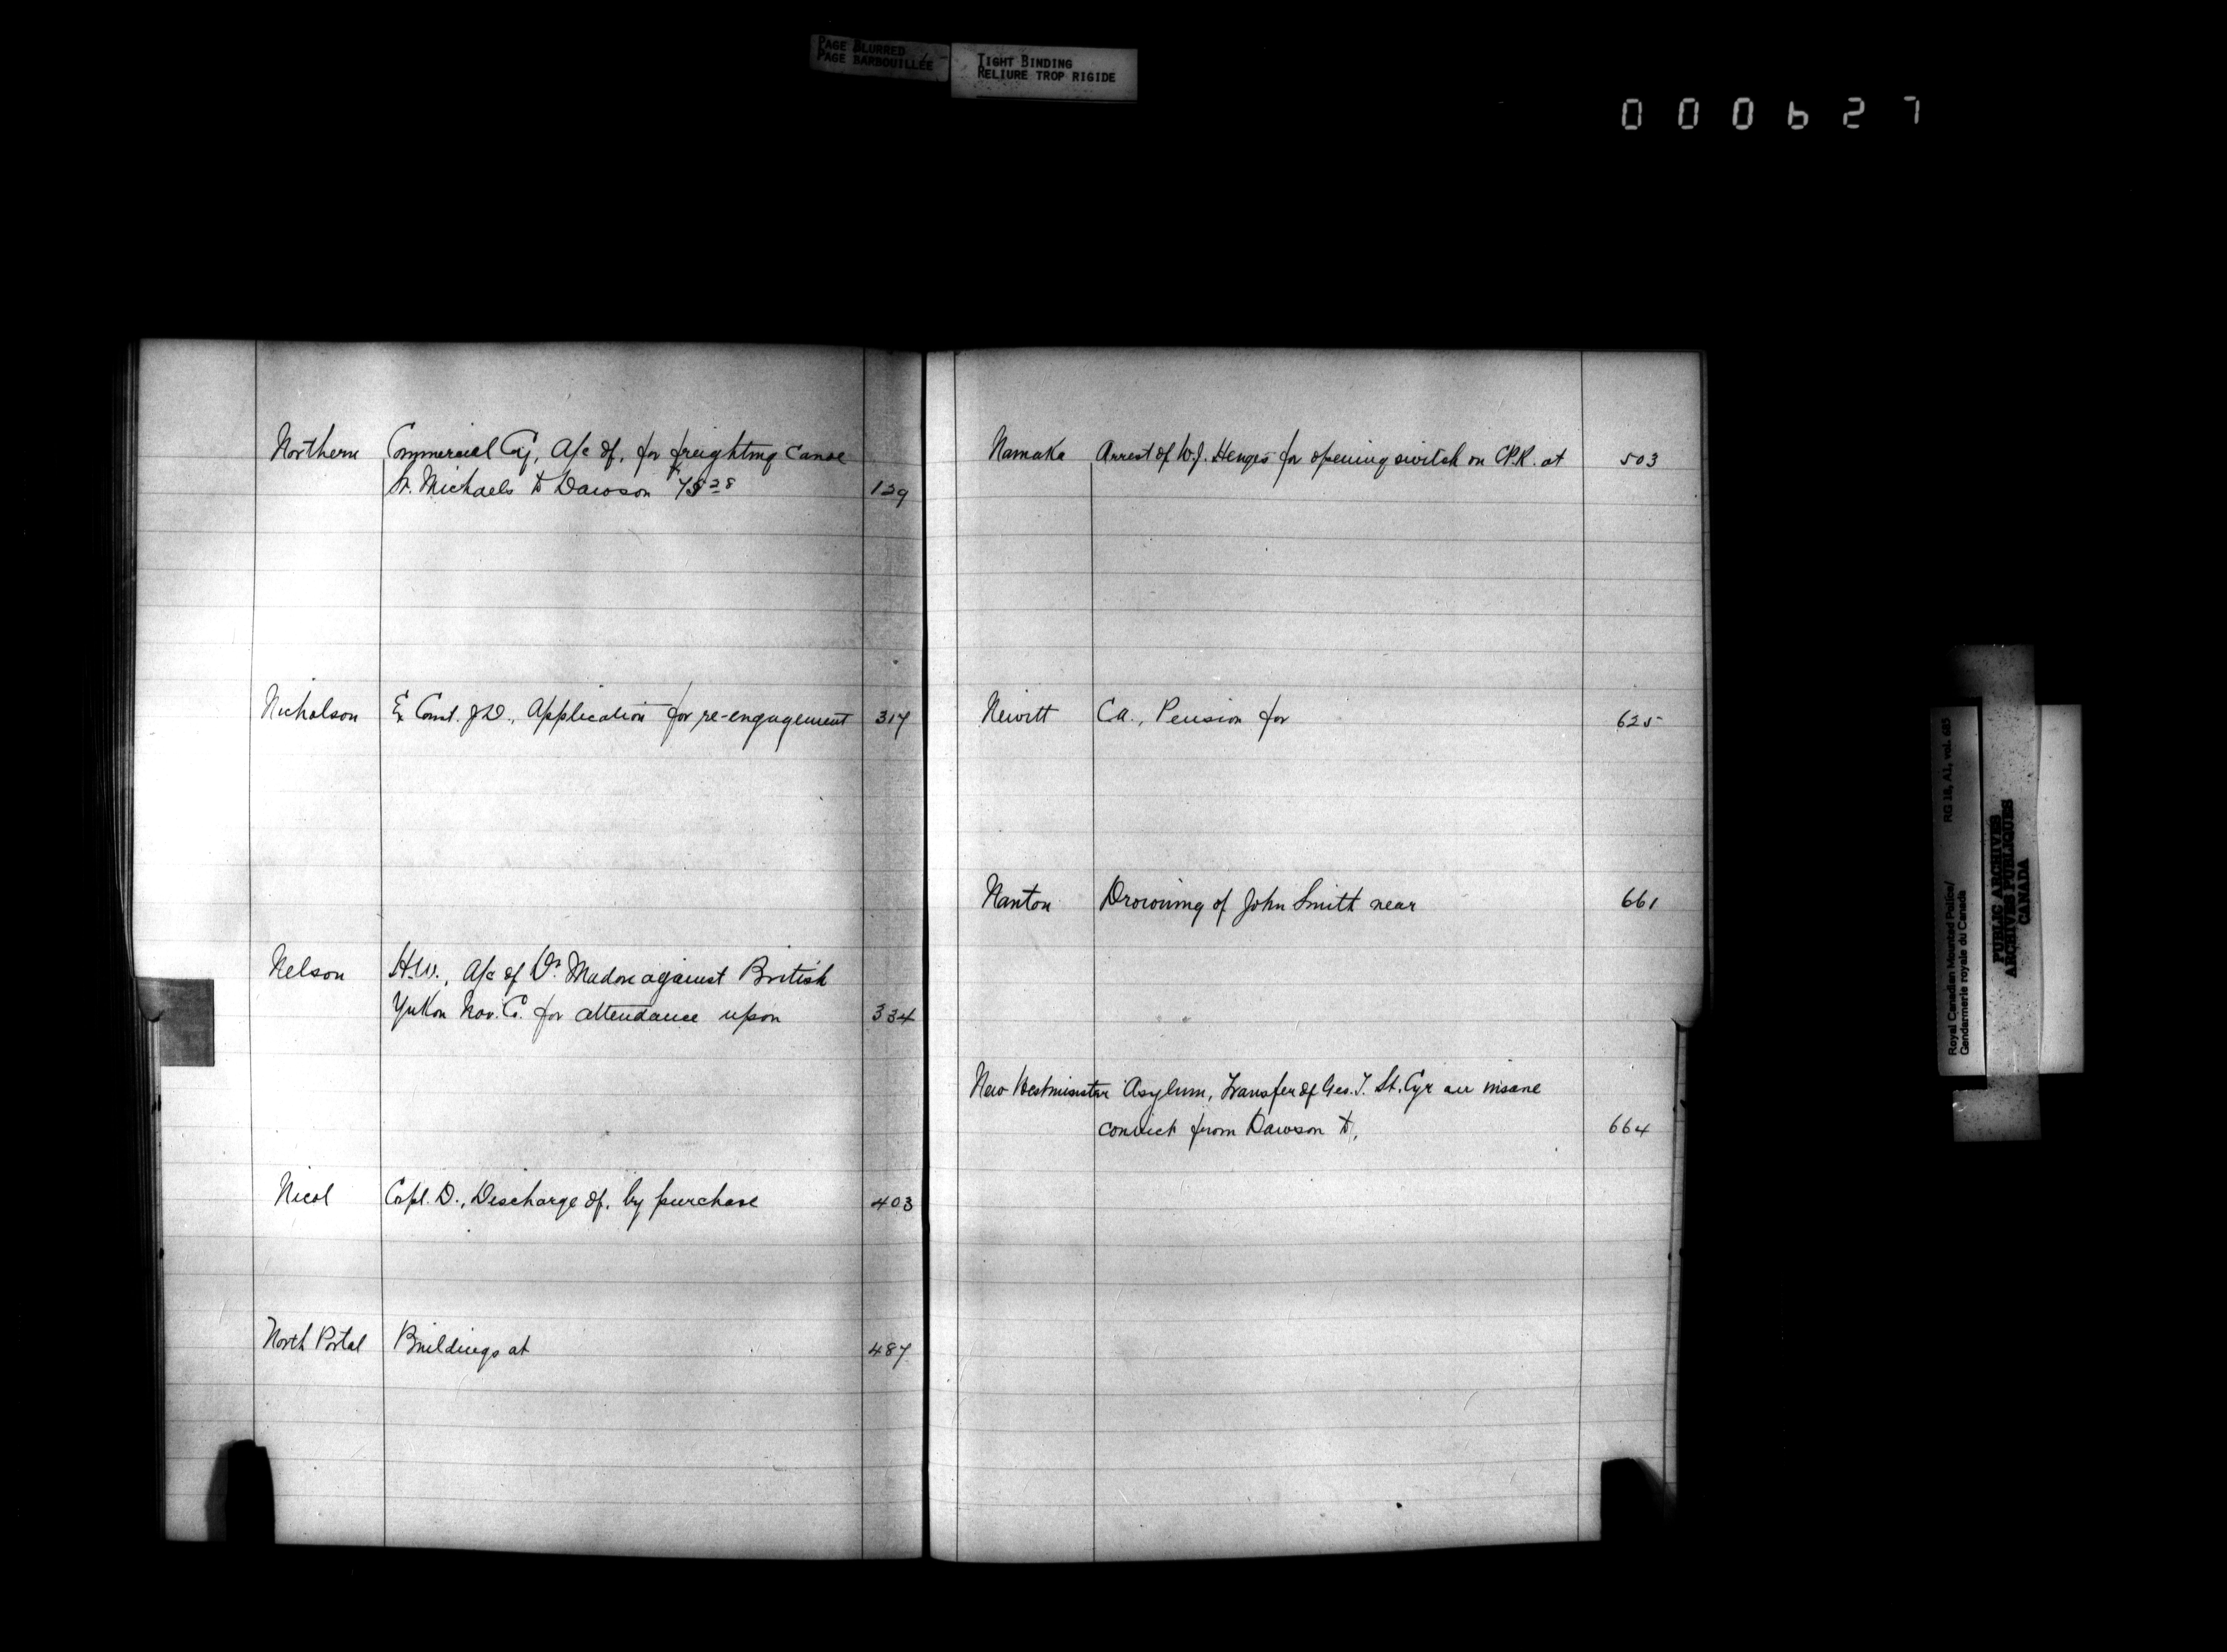 PAGE BLURRED
PAGE BARBOUILLÉE
TIGHT BINDING
RELIURE TROP RIGIDE
000627
Northern Commercial Coy, A/c of, for freighting canoe
St. Michaels to Dawson 129
Nicholson Ex Const. J.D., Application for re-engagement 317
Nelson H.W., A/c of Dr. Madore against British
Yukon Nav. Co. for attendance upon 334
Nicol Corpl. D., Discharge of, by purchase 403
North Portal Buildings at 487
Namaka Arrest of W.J. Henges for opening switch on C.P.R. at 503
Newitt C.A., Pension for 625
Nanton Drowning of John Smith near 661
New Westminster Asylum, Transfer of Geo. T. St. Cyr an insane
convict from Dawson to, 664
Royal Canadian Mounted Police/ RG 18, A1, vol. 683
Gendarmerie royale du Canada
PUBLIC ARCHIVES
ARCHIVES PUBLIQUES
CANADA